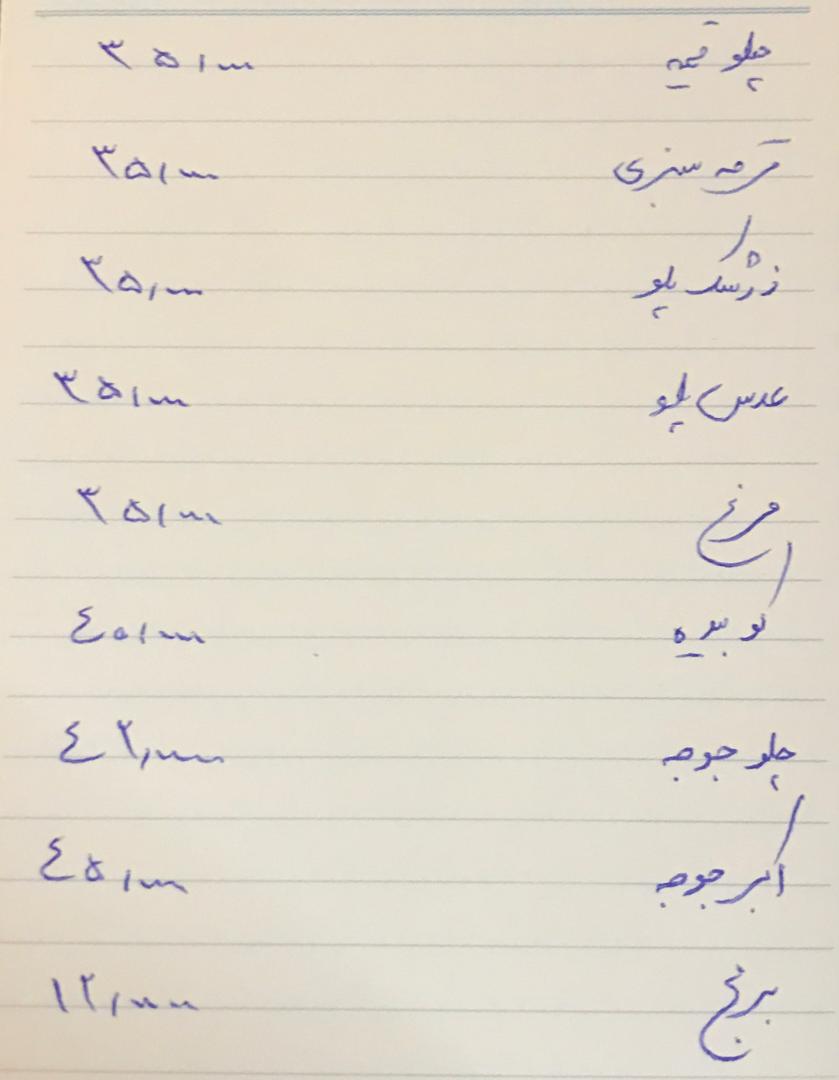 چلو قیمه ۳۵,۰۰۰
قرمه سبزی ۳۵,۰۰۰
زرشک پلو ۳۵,۰۰۰
عدس پلو ۳۵,۰۰۰
مرغ ۳۵,۰۰۰
کوبیده ۴۰,۰۰۰
چلو جوجه ۴۲,۰۰۰
اکبر جوجه ۴۵,۰۰۰
برنج ۱۲,۰۰۰